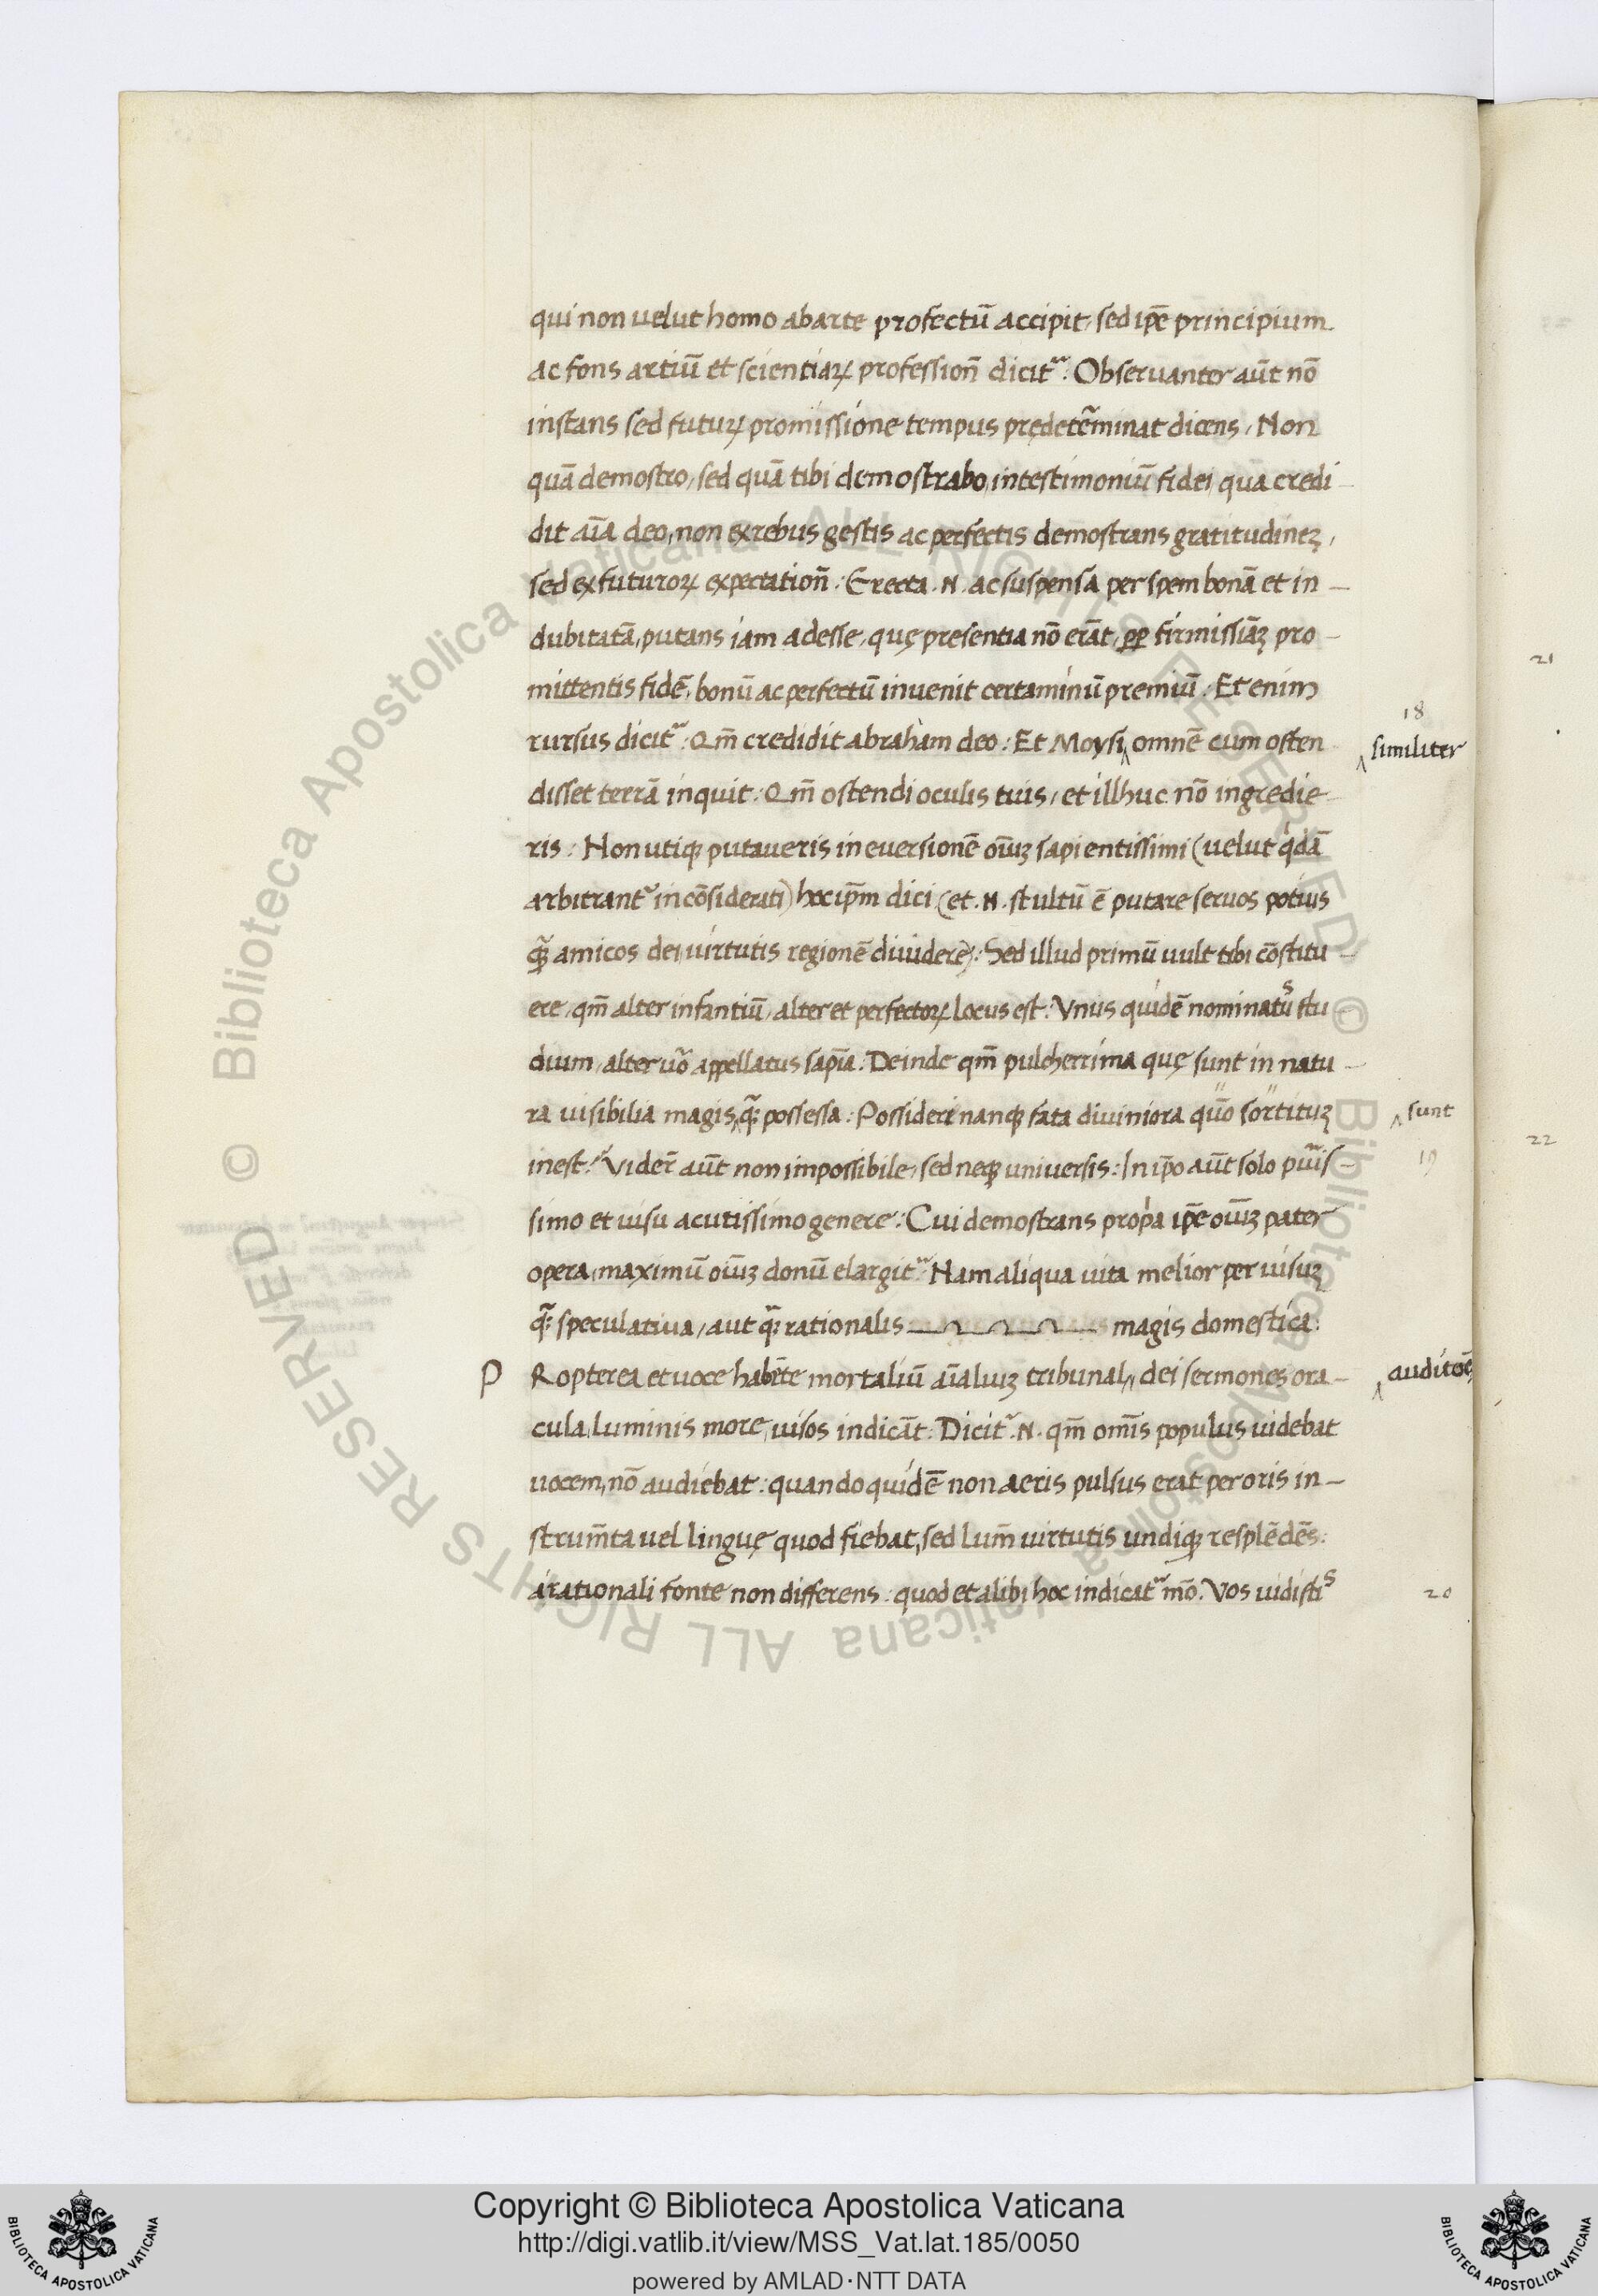 qui non uelut homo ab arte profectū accipit, sed ip̄e principium
ac fons artiū et scientiaꝝ professioñ dicit᷑: Obseruanter aūt nō
instans sed futuꝝ promissione tempus prędetẽminat dicens, Non
quā demostro, sed quā tibi demostrabo, in testimoniū fidei, qua credi-
dit aīa deo, non ex rebus gestis ac perfectis demostrans gratitudinēꝫ,
sed ex futuroꝝ expectatioñ: Erecta .N. ac suspensa per spem bonā et in-
dubitatā, putans iam adesse, quę presentia nō erāt, ꝓꝑ firmissiāꝫ pro-
mittentis fidē, bonū ac perfectū inuenit certaminū premiū: Et enim
18
rursus dicit᷑: Qm̄ credidit abraham deo: Et Moysi‸ omnē cum osten
‸ similiter
disset terrā inquit: Qm̄ ostendi oculis tuis, et illhuc nō ingredie-
ris: Non utiqꝫ putaueris in euersionē oīuꝫ sapientissimi (uelut q̇dā
arbitrant᷑ incōsiderati) hoc ip̄m dici (et .N. stultū ē putare seruos potius
q̃ꝫ amicos dei uirtutis regionē diuidere): Sed illud primū uult tibi cōstitu-
ere, qm̄ alter infantiū, alter et perfectoꝝ locus est: Vnus quidē nominatus stu-
dium, alter uo᷑ appellatus sap̄ia: Deinde qm̄ pulcherrima quę sunt in natu-
ra uisibilia magis‸ q̃ꝫ possessa: Possideri nanqꝫ fata diuiniora quō sortituꝫ
‸ sunt
inest: Vider̄ aūt non impossibile, sed neqꝫ uniuersis: In ip̄o aūt solo pur᷑is-
19
simo et uisu acutissimo genere: Cui demostrans propa ip̄e oīuꝫ pater
opera, maximū oīuꝫ donū elargit᷑: Nam aliqua uita melior per uisuꝫ
q̃ꝫ speculatiua, aut q̃ꝫ rationalis magis domestica:
P Ropterea et uoce habēte mortaliū aīaliuꝫ tribunal‸ dei sermones ora-
‸ auditoē
cula, luminis more, uisos indicāt: Dicit᷑ .N. qm̄ om̄is populus uidebat
uocem, nō audiebat: quando quidē non aeris pulsus erat per oris in-
strum̄ta uel linguę quod fiebat, sed lum̄ uirtutis undiqꝫ resplēdēs:
a rationali fonte non differens: quod et alibi hoc indicat᷑ mō. Vos uidistis
20
21
22
Copyright © Biblioteca Apostolica Vaticana
http://digi.vatlib.it/view/MSS_Vat.lat.185/0050
powered by AMLAD·NTT DATA
BIBLIOTECA APOSTOLICA VATICANA
BIBLIOTECA APOSTOLICA VATICANA
© Biblioteca Apostolica Vaticana ALL RIGHTS RESERVED
© Biblioteca Apostolica Vaticana ALL RIGHTS RESERVED